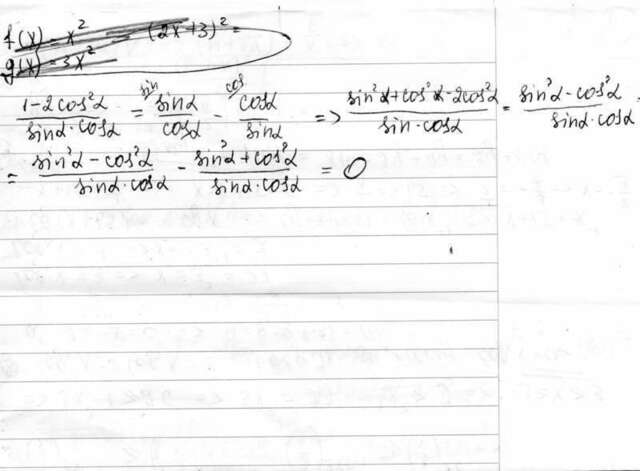 f(x) = x² — (2x+3)² =
g(x) = 3x²
(1-2cos²α)/(sinα·cosα) = sin sinα/cosα - cos cosα/sinα => (sin²α+cos²α-2cos²α)/(sin·cosα) = (sin²α-cos²α)/(sinα·cosα)
= (sin²α-cos²α)/(sinα·cosα) - (sin²α+cos²α)/(sinα·cosα) = 0